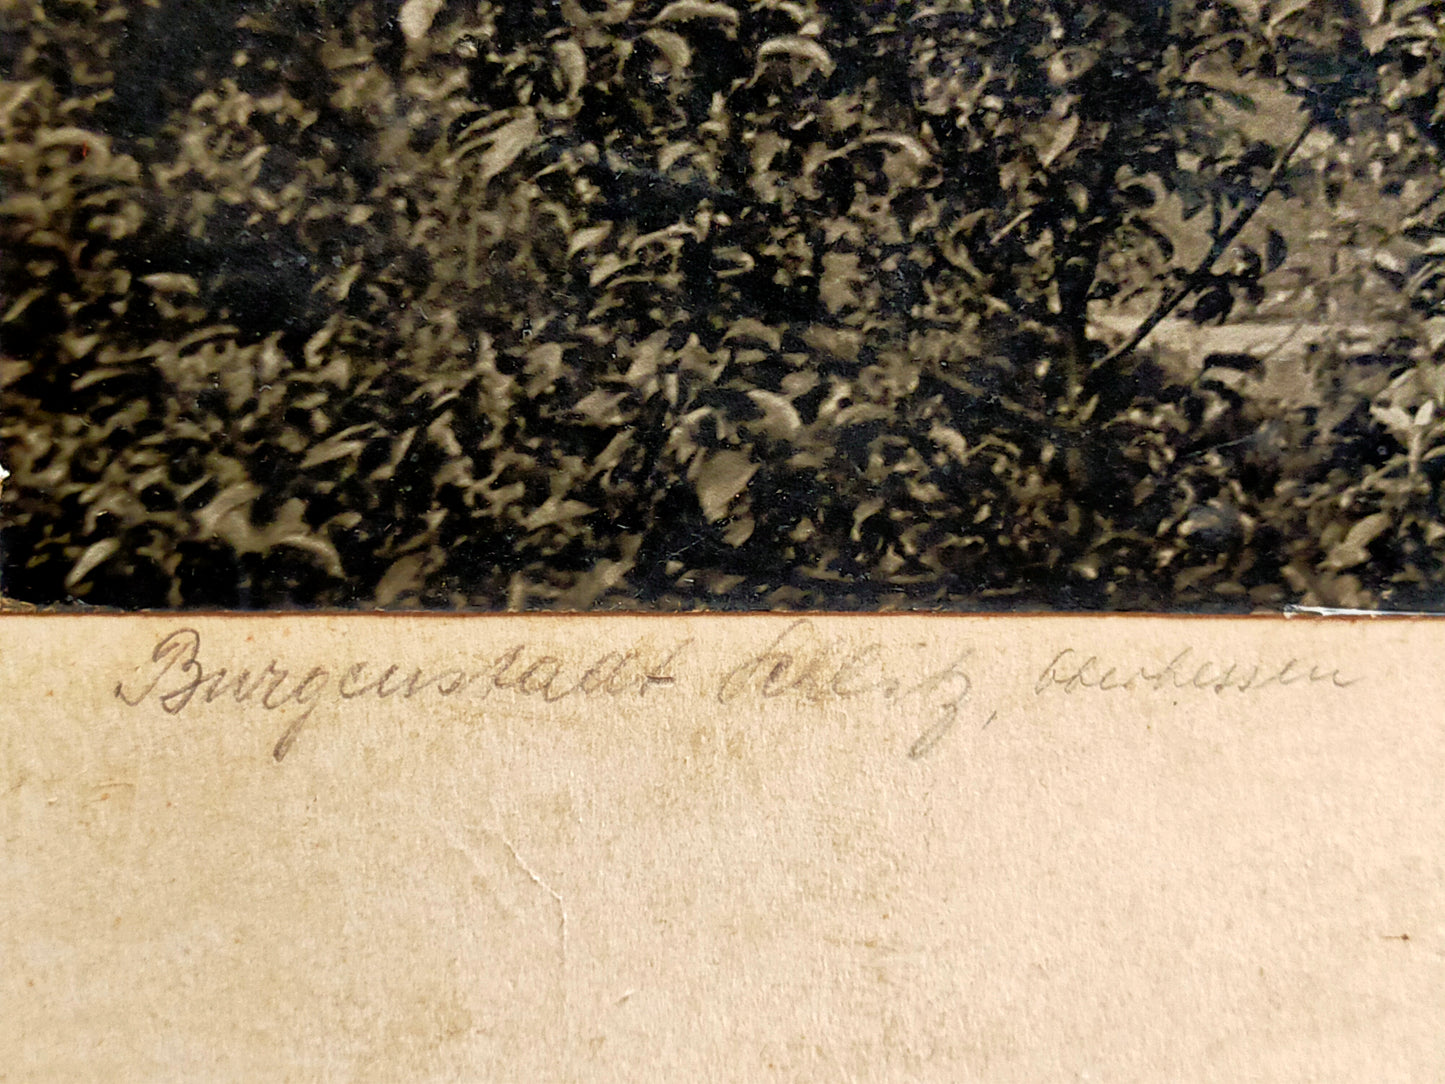 Burgenstadt Schlitz, Oberhessen